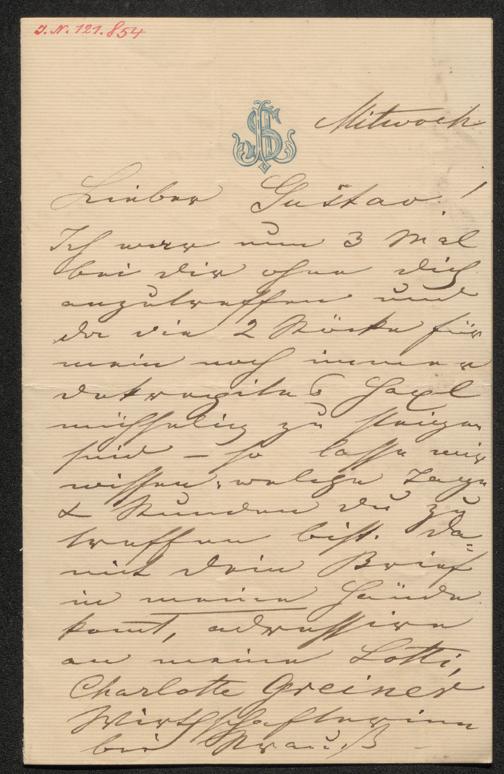 J.N. 121.854
Mitwoch
Lieber Gustav!
Ich war nun 3 Mal
bei dir ohne dich
anzutreffen und
da die 2 Stöcke für
mein noch immer
dekrepites
mühselig zu steigen
sind – so lasse mich
wissen, welche Tage
& Stunden du zu
treffen bist. Da=
mit dein Brief
in meine Hände
komt, adressire
an meine Lotti,
Charlotte Greiner
Wirthschafterinn
bei Strauß –